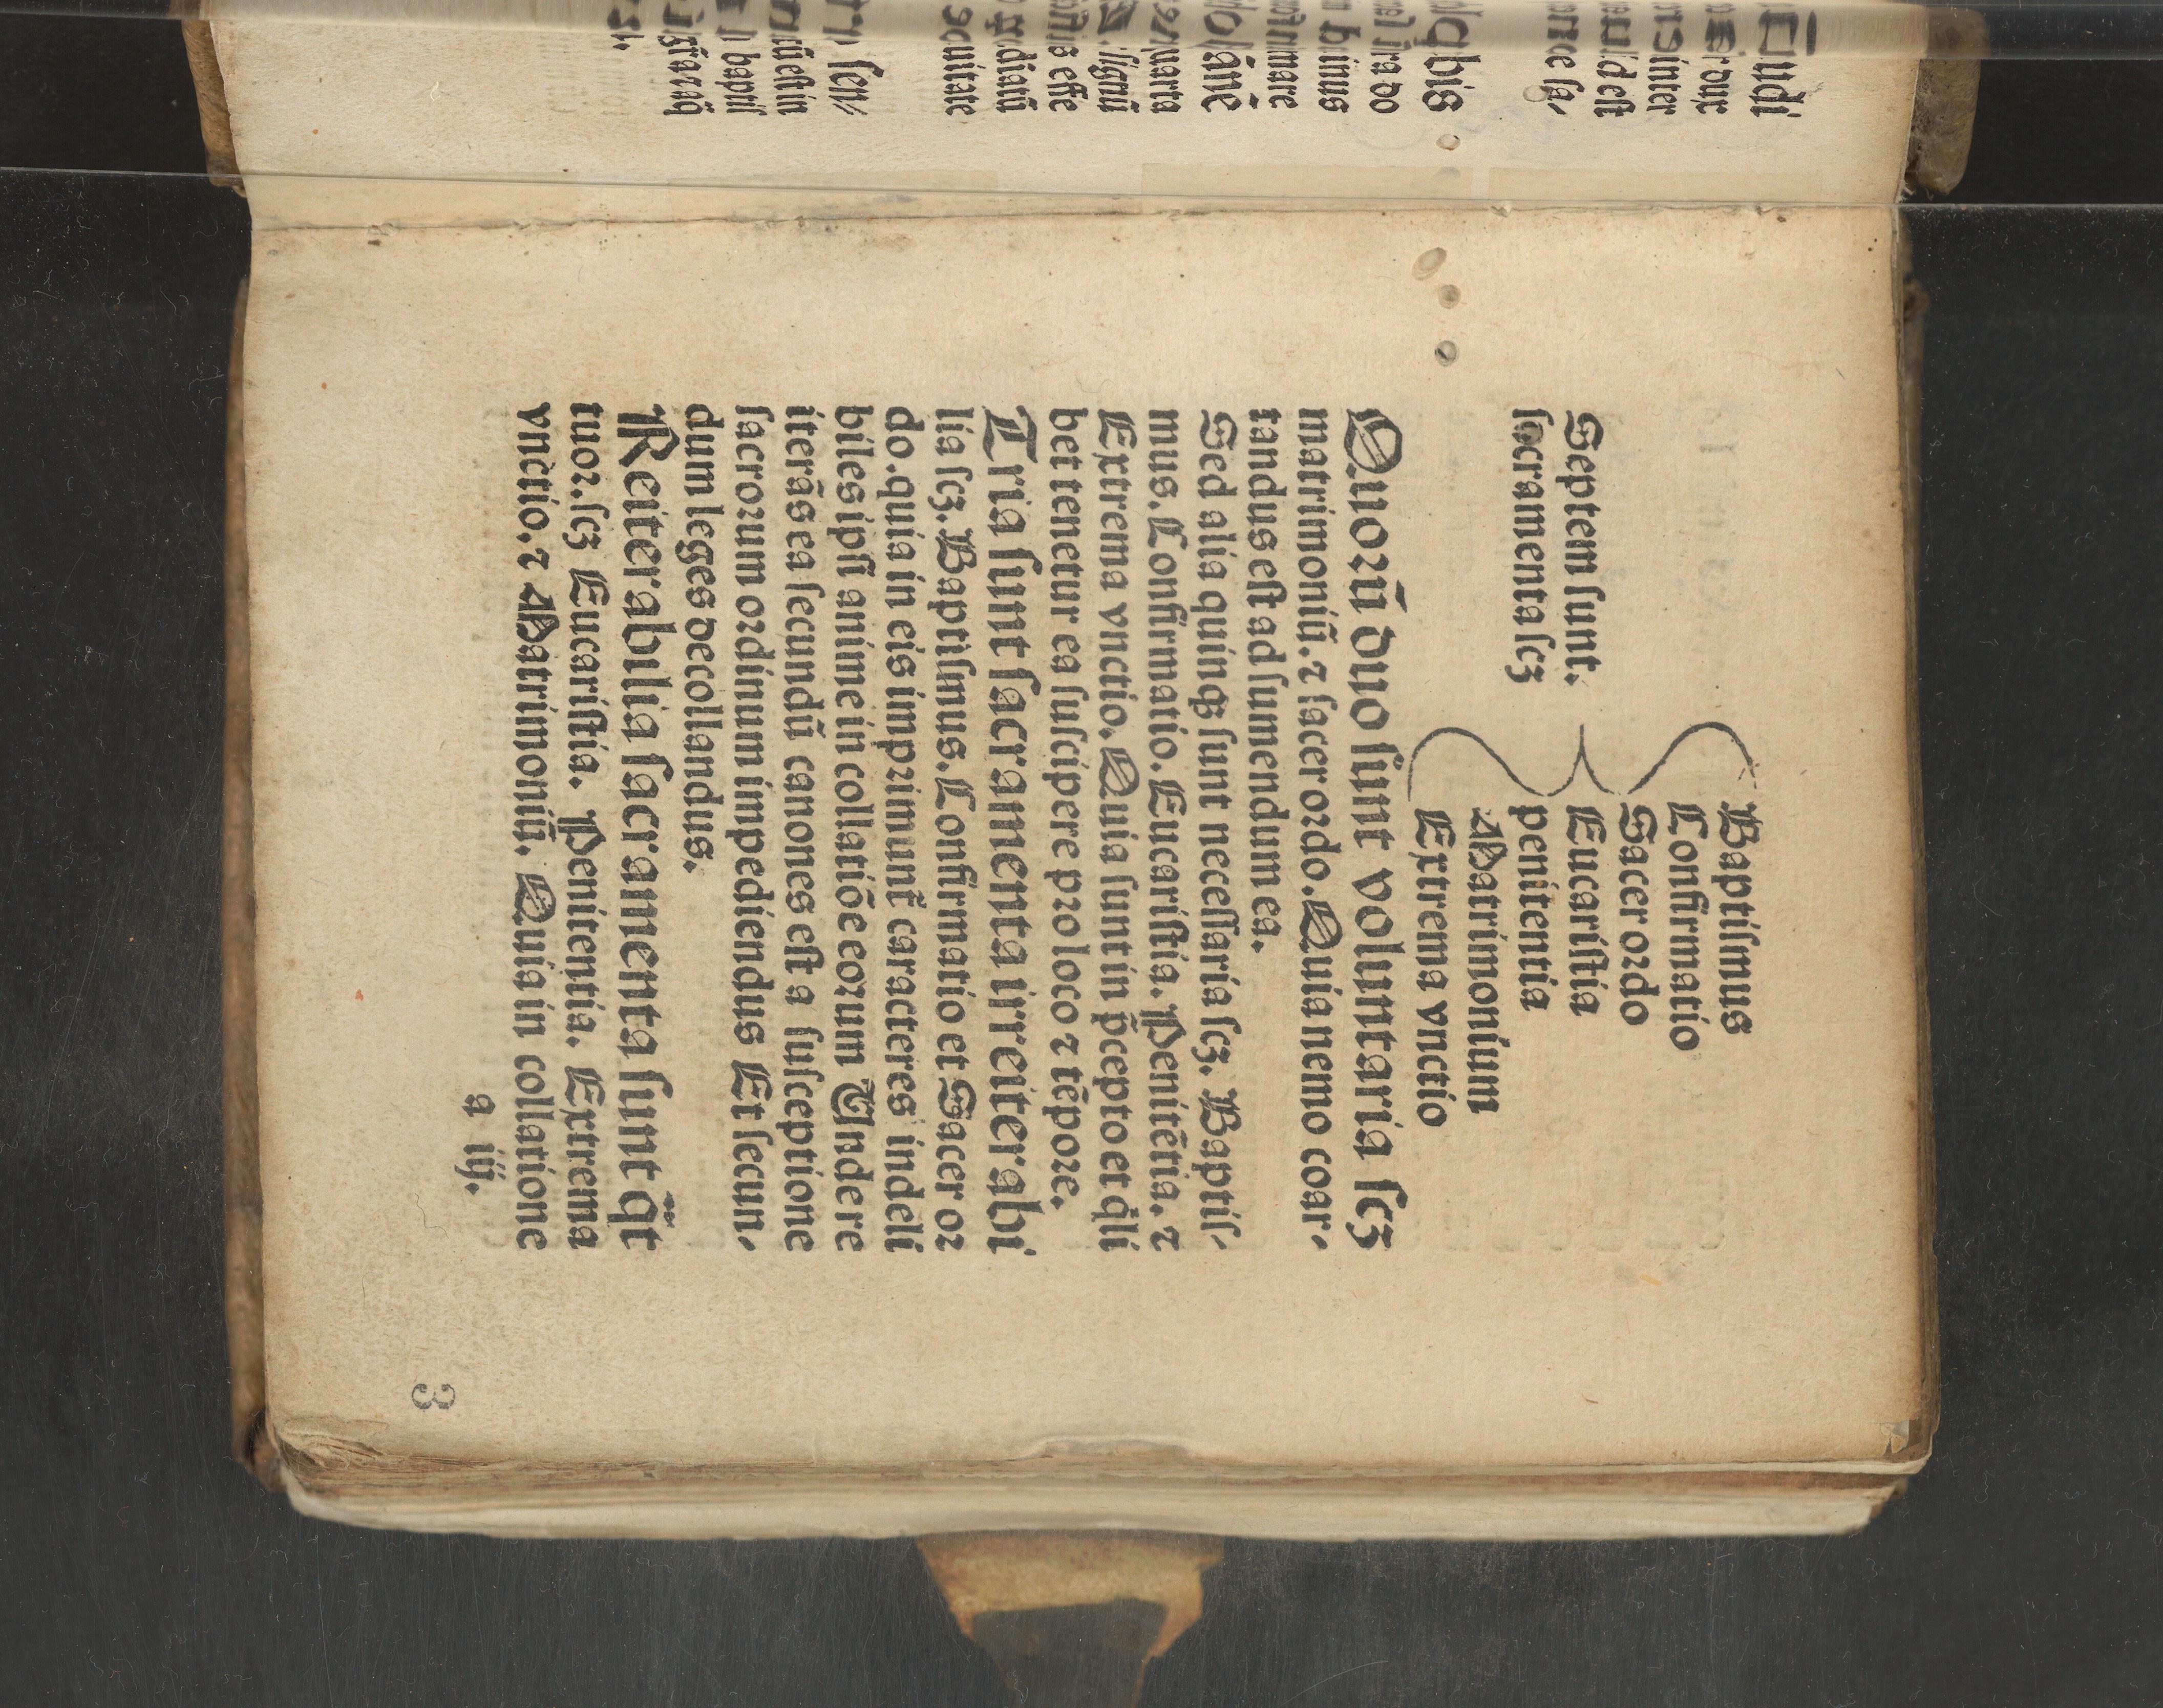 Baptiſmus
Confirmatio
Sacer ordo
Septem ſunt.
Eucariſtia
ſacramenta ſcꝫ
penitentia
Matrimonium
Extrema vnctio
Quoꝝū duo ſunt voluntaria ſcꝫ
matrimoniū. ⁊ ſacer oꝛdo. Quia nemo coar⸗
tandus eſt ad ſumendum ea.
Sed alia quinqꝫ ſunt neceſſaria ſcꝫ. Baptiſ⸗
mus. Confirmatio. Eucariſtia. Penitētia. ⁊
Extrema vnctio. Quia ſunt in p̄cepto et q̄li
bet tenetur ea ſuſcipere pꝛo loco ⁊ tēpoꝛe.
Tria ſunt ſacramenta irreiterabi
lia ſcꝫ. Baptiſmus. Confirmatio et Sacer oꝛ
do. quia in eis impꝛimunt̄ caracteres indeli
biles ipſi anime in collatiōe eoꝛum Unde re
iterās ea ſecundū canones eſt a ſuſceptione
ſacroꝛum oꝛdinum impediendus Et ſecun⸗
dum leges decollandus.
Reiterabilia ſacramenta ſunt q̄t
tuoꝛ. ſcꝫ Eucariſtia. Penitentia. Extrema
vnctio. ⁊ Matrimoniū. Quia in collatione
a iij.
3